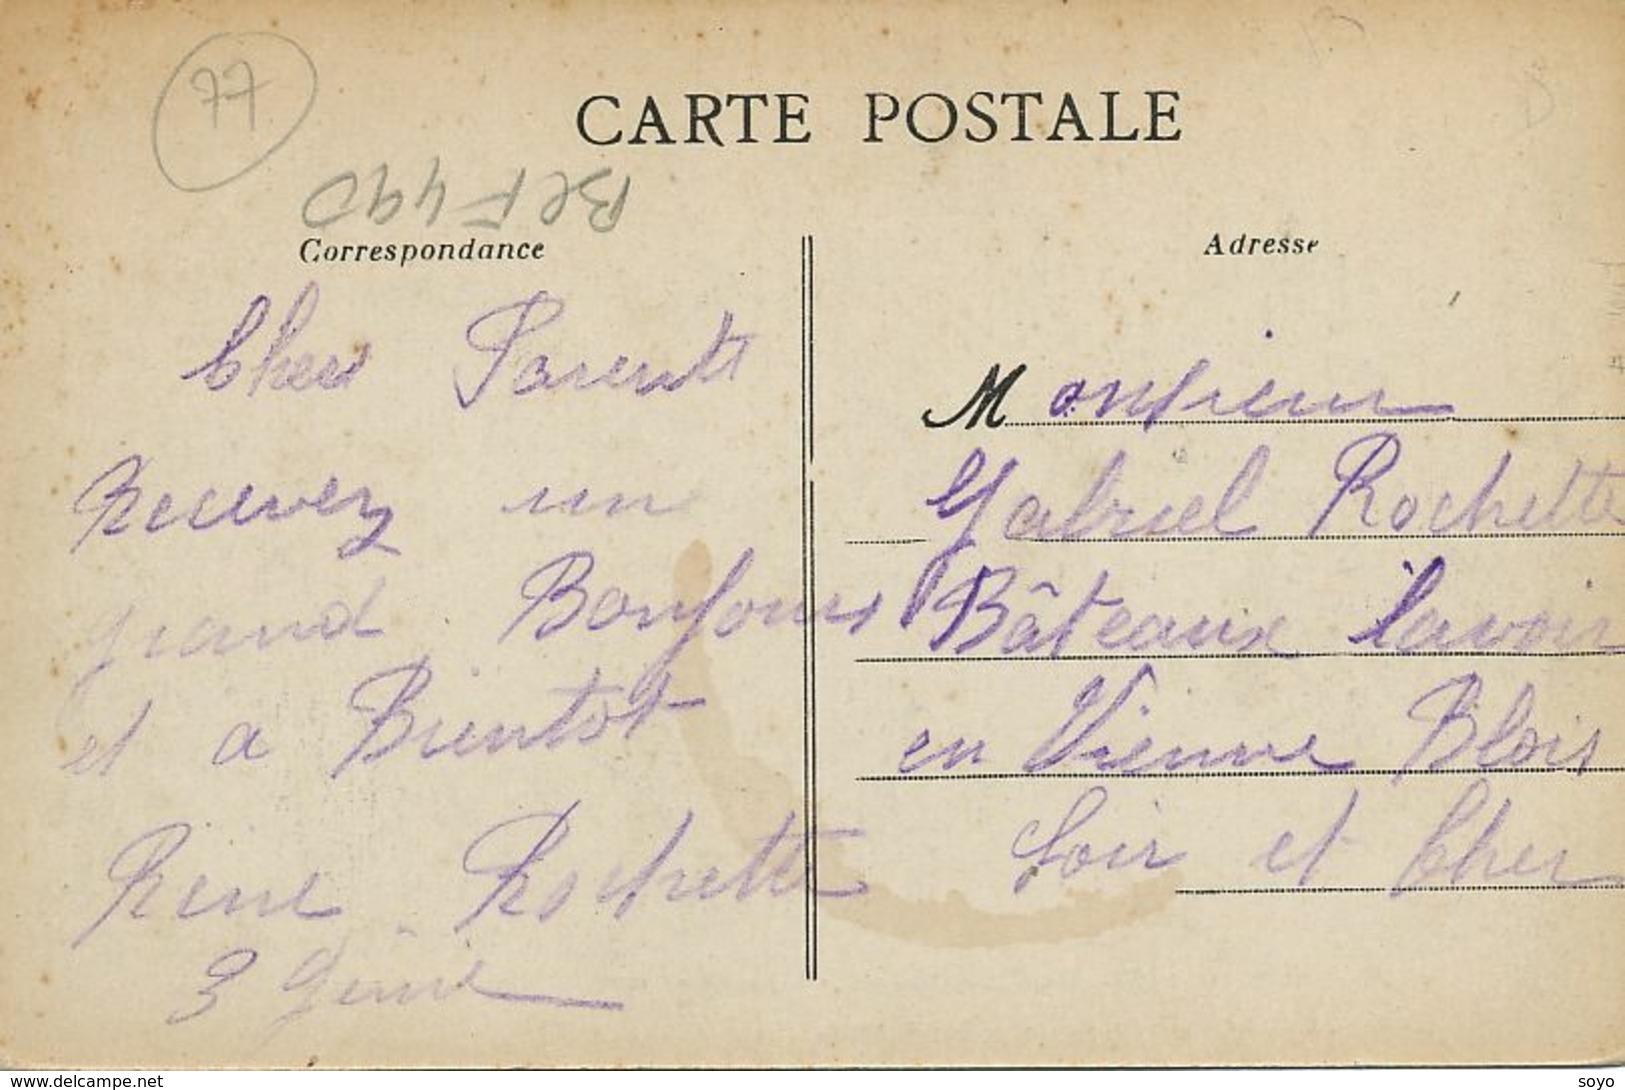 77
CARTE POSTALE
BCF 490
Correspondance
Cher Parents
Recevez un
grand Bonjours
et a Bientot
René Rochette
3 Génie
Adresse
Monsieur
Gabriel Rochette
Bâteaux lavoir
en Vienne Blois
Loir et Cher
www.delcampe.net
soyo